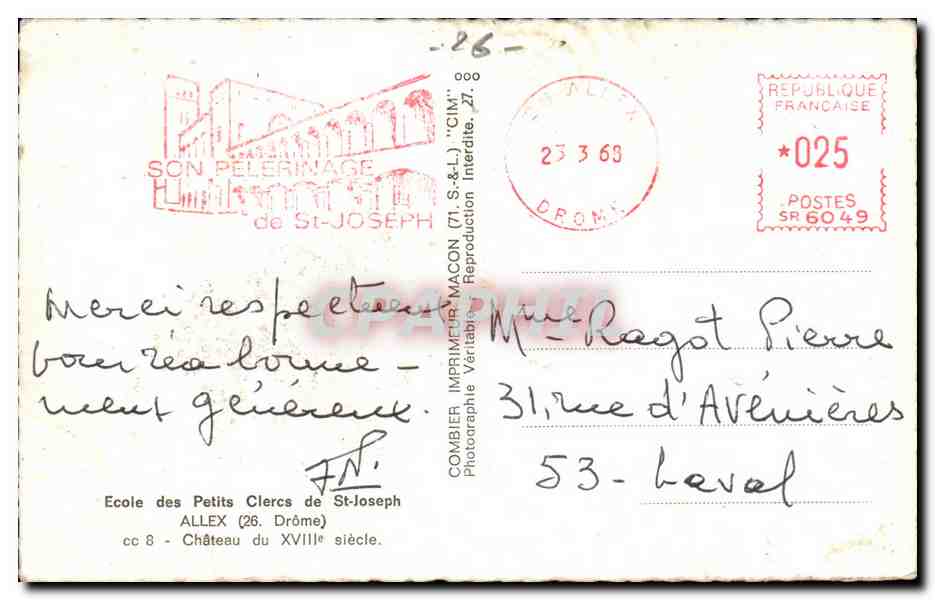 - 26 -
SON PELERINAGE
de St-JOSEPH
Merci respectueux
pour
ment généreux.
Ecole des Petits Clercs de St-Joseph
ALLEX (26. Drôme)
cc 8 - Château du XVIIIe siècle.
COMBIER IMPRIMEUR MACON (71. S.-&-L.) "CIM" ooo
Photographie Véritable - Reproduction Interdite. 27.
DROME
REPUBLIQUE
FRANÇAISE
*025
POSTES
SR 6049
Mme Ragot Pierre
31, rue d'Avénières
53 - Laval
CPAPHIL